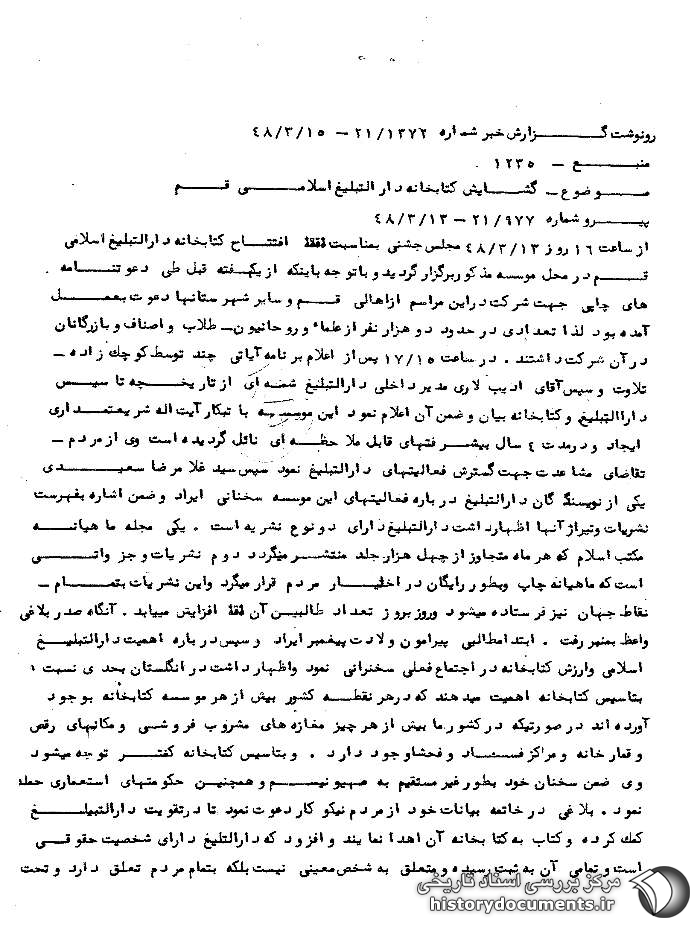 رونوشت گـزارش خبر شماره ۲۱/۱۳۷۲ – ۴۸/۳/۱۵
منبـع – ۱۲۳۵
مـوضوع – گشـایش کتابخانه دار التبلیغ اسلامـی قـم
پیـرو شماره ۲۱/۹۷۷ – ۴۸/۳/۱۳
از ساعت ۱۶ روز ۴۸/۳/۱۳ مجلس جشنی بمناسبت افتتـاح کتابخانه دارالتبلیغ اسلامی
قـم در محل موسسه مذکور برگزار گردید و باتوجه باینکه از یکهفته قبل طی دعوتنـامه
های چاپی جهت شرکت در این مراسم از اهالی قـم و سایر شهرستانها دعوت بعمـل
آمده بود لذا تعدادی در حدود دو هزار نفر از علماء و روحانیون – طلاب و اصناف و بازرگانان
در آن شرکت داشتند . در ساعت ۱۷/۱۵ پس از اعلام برنامه آیاتی چند توسط کوچک زاده –
تلاوت و سپس آقای ادیب لاری مدیر داخلی دارالتبلیغ شمه ای از تاریخـچه تاسیـس
دارالتبلیغ و کتابخانه بیان و ضمن آن اعلام نمود این موسسه با ابتکار آیت اله شریعتمـداری
ایجاد و در مدت ۴ سال بپیشـرفتهای قابل ملاحظه ای نائل گردیده است وی از مردم –
تقاضای مساعدت جهت گسترش فعالیتهای دارالتبلیغ نمود سپس سید غلامرضا سعیـدی
یکی از نویسندگان دارالتبلیغ درباره فعالیتهای این موسسه سخنانی ایراد و ضمن اشاره بفهرست
نشریات و تیراژ آنها اظهارداشت دارالتبلیغ دارای دو نوع نشریه است . یکی مجله ماهیانـه
مکتب اسلام که هر ماه متجاوز از چهل هزار جلد منتشـر میگردد دوم نشریات و جزواتـی
است که ماهیانه چاپ وبطور رایگان در اختیـار مردم قرار میگرد واین نشریات بتمـام –
نقاط جهان نیز فرستاده میشود وروز بروز تعداد طالبیـن آن افزایش مییابد . آنگاه صدر بلاغی
واعظ بمنبر رفت . ابتدا مطالبی پیرامون ولادت پیغمبر ایراد و سپس درباره اهمیت دارالتبلیـغ
اسلامی وارزش کتابخانه در اجتماع فعلی سخنرانی نمود واظهارداشت در انگلستان بحدی نسبت
بتاسیس کتابخانه اهمیت میدهند که در هر نقطـه کشور بیش از هر موسسه کتابخانه بوجود
آورده اند در صورتیکه در کشور ما بیش از هر چیز مغازه های مشروب فروشـی و مکانهای رقص
و قمار خانه و مراکز فسـاد و فحشاء وجود دارد . و بتاسیس کتابخانه کمتـر توجه میشود
وی ضمن سخنان خود بطور غیر مستقیم به صهیونیسـم و همچنین حکومتهای استعماری حمله
نمود . بلاغی در خاتمه بیانات خود از مردم نیکوکار دعوت نمود تا در تقویت دارالتبیلـغ
کمک کرده و کتاب به کتابخانه آن اهدا نمایند و افزود که دارالتلیغ دارای شخصیت حقوقـی
است و تمامی آن به ثبت رسیده و متعلق به شخص معینی نیست بلکه بتمام مردم تعلق دارد و تحت
مرکز بررسی اسناد تاریخی
historydocuments.ir